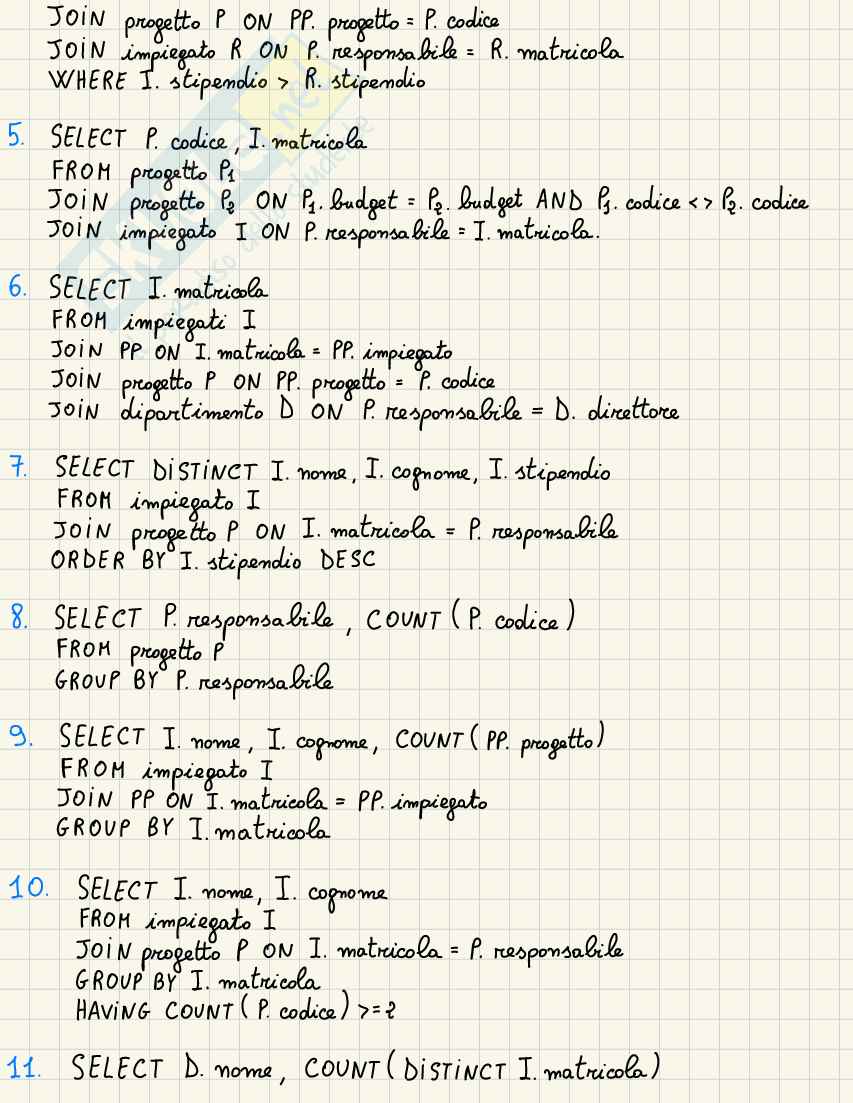 JOIN progetto P ON PP. progetto = P. codice
JOIN impiegato R ON P. responsabile = R. matricola
WHERE I. stipendio > R. stipendio
5. SELECT P. codice, I. matricola
FROM progetto P1
JOIN progetto P2 ON P1. budget = P2. budget AND P1. codice <> P2. codice
JOIN impiegato I ON P. responsabile = I. matricola.
6. SELECT I. matricola
FROM impiegati I
JOIN PP ON I. matricola = PP. impiegato
JOIN progetto P ON PP. progetto = P. codice
JOIN dipartimento D ON P. responsabile = D. direttore
7. SELECT DISTINCT I. nome, I. cognome, I. stipendio
FROM impiegato I
JOIN progetto P ON I. matricola = P. responsabile
ORDER BY I. stipendio DESC
8. SELECT P. responsabile, COUNT(P. codice)
FROM progetto P
GROUP BY P. responsabile
9. SELECT I. nome, I. cognome, COUNT(PP. progetto)
FROM impiegato I
JOIN PP ON I. matricola = PP. impiegato
GROUP BY I. matricola
10. SELECT I. nome, I. cognome
FROM impiegato I
JOIN progetto P ON I. matricola = P. responsabile
GROUP BY I. matricola
HAVING COUNT(P. codice) >= 2
11. SELECT D. nome, COUNT(DISTINCT I. matricola)